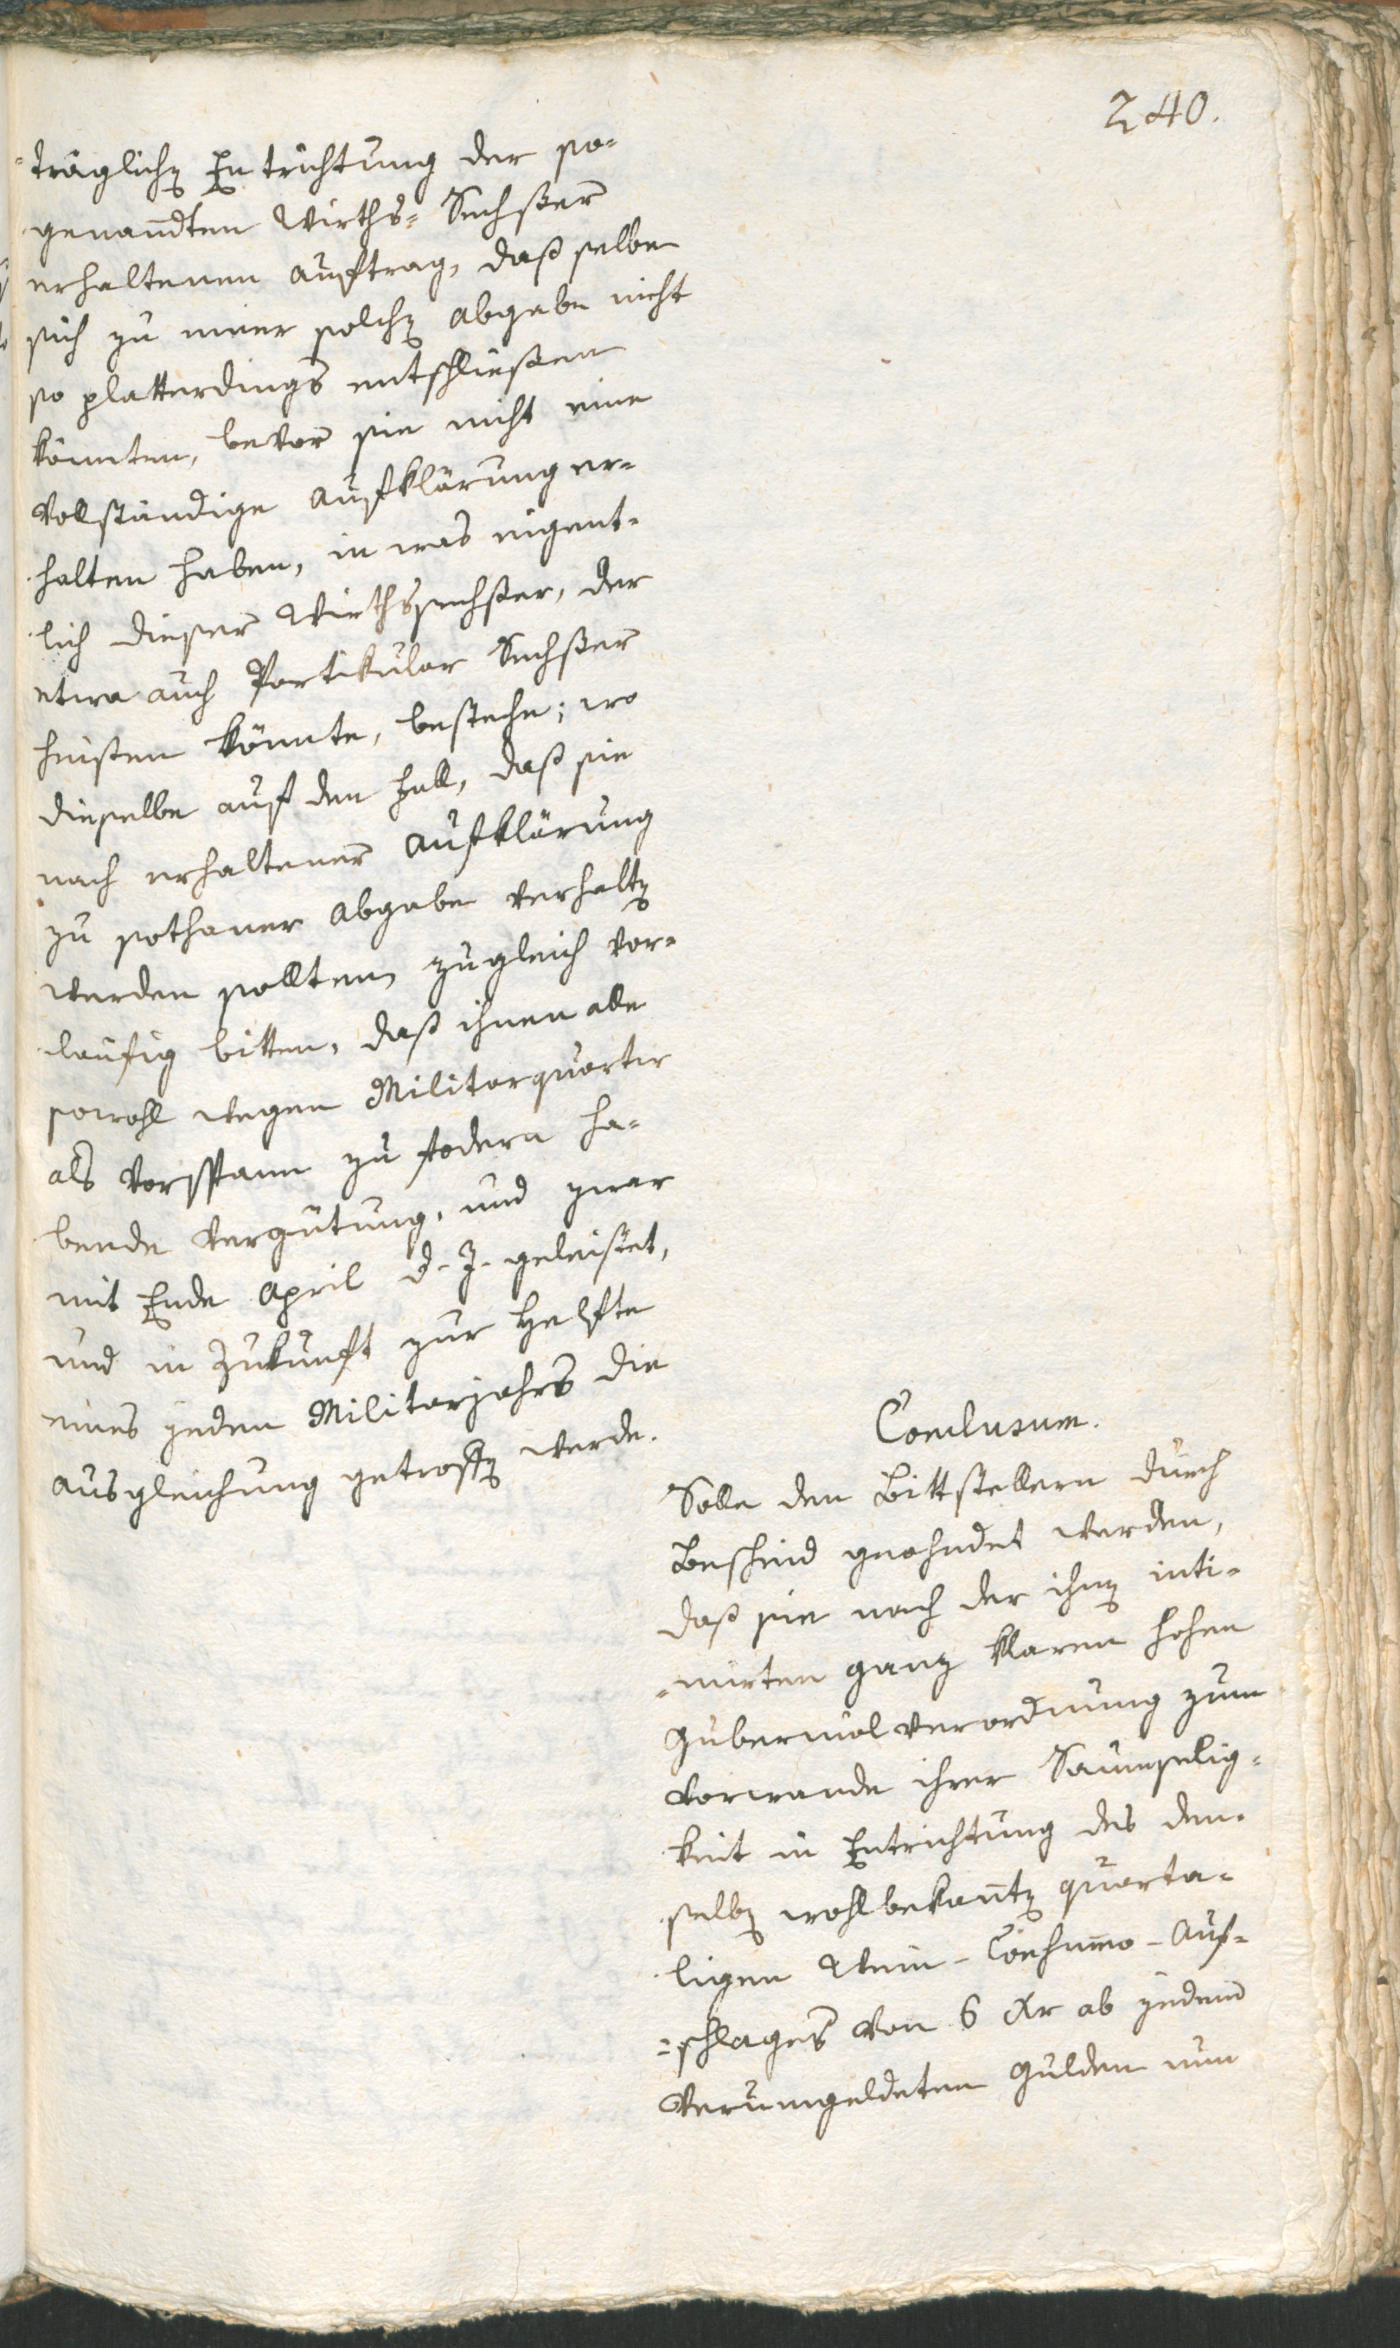 240.
-träglichen Entrichtung der so-
genandten Wirths-Sechsser
erhaltenen Auftrag, daß selbe
sich zu einer solchen Abgabe nicht
so platterdings entschließen
könnten, bevor sie nicht eine
vollständige Aufklärung er-
halten haben, in was eigent-
lich dieser Wirthssechsser, der
etwa auch Partikular Sechsser
heißen könnte, bestehe; wo
dieselbe auf den Fall, daß sie
nach erhaltener Aufklärung
zu sothaner Abgabe verhalten
werden sollten, zugleich vor-
läufig bitten, daß ihnen alle
sowohl wegen Militarquartir
als Vorspann zu fodern ha-
bende Vergütung, und zwar
mit Ende April d. J. geleistet,
und in Zukunft zur Helfte
eines jeden Militarjahrs die
Ausgleichung getroffen werde.
Conclusum.
Solle den Bittstellern durch
Bescheid geahndet werden,
daß sie nach der ihnen inti-
-mirten ganz klaren hohen
Gubernialverordnung zum
Vorwande ihrer Saumselig-
keit in Entrichtung des den-
selben wohlbekanten quarta-
ligen Wein-Consumo-Auf-
-schlages von 6 Xr ab jedem
verumgeldeten Gulden nun